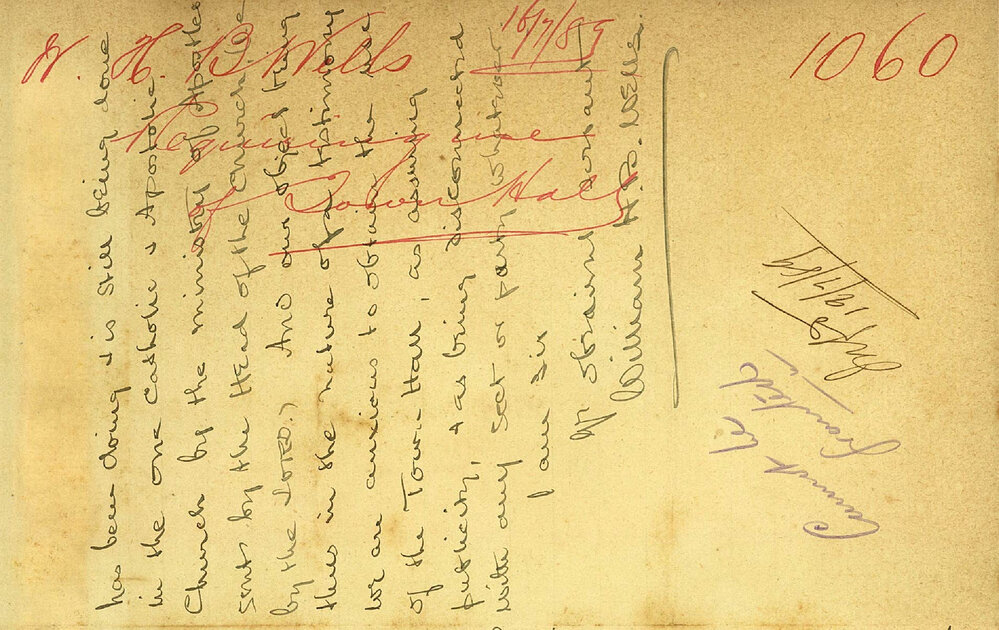 W. H. B. Wells 16/7/89
1060
Requiring use
of Town Hall
has been doing & is still being done
in the one Catholic & Apostolic
Church by the ministry of Apostles
sent by the Head of the Church (i.e.
by the LORD.) And our object being
thus in the nature of a testimony
we are anxious to obtain the use
of the Town-Hall, as assuring
publicity, & as being disconnected
with any sect or party whatever.
I am Sir
Yr obedient servant
William H.B. Wells.
Cannot be
granted
16/7/89